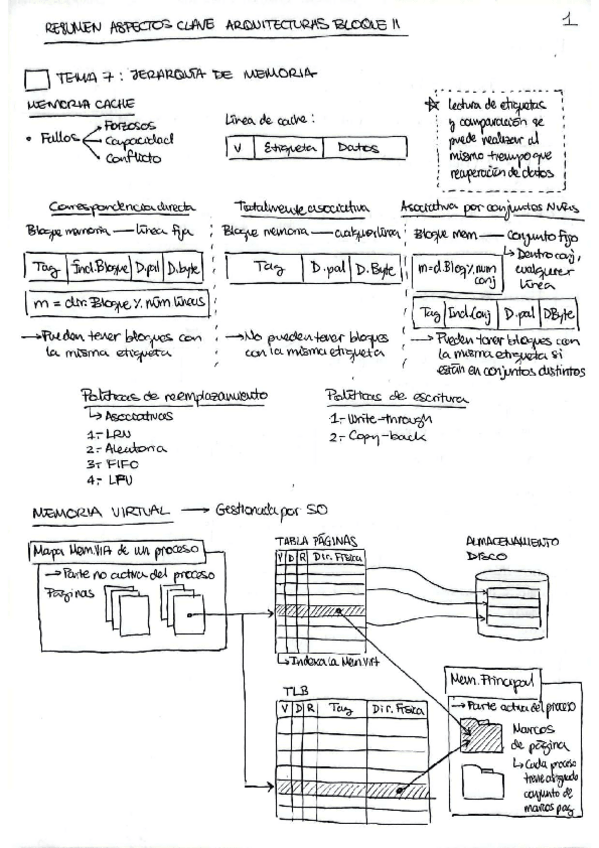 RESUMEN ASPECTOS CLAVE ARQUITECTURAS BLOQUE II
1
TEMA 7: JERARQUÍA DE MEMORIA
MEMORIA CACHE
• Fallos
Forzosos
Capacidad
Conflicto
Línea de cache:
V Etiqueta Datos
☆ Lectura de etiquetas
y comparación se
puede realizar al
mismo tiempo que
recuperación de datos
Correspondencia directa
Bloque memoria — Línea fija
Tag Ind.Bloque D.pal D.byte
m = dir. Bloque % núm líneas
→ Pueden tener bloques con
la misma etiqueta
Totalmente asociativa
Bloque memoria — cualquier línea
Tag D.pal D.Byte
→ No pueden tener bloques
con la misma etiqueta
Asociativa por conjuntos N vías
Bloque mem — Conjunto fijo
↳ Dentro conj,
cualquier
línea
m=d.Bloq % num
conj
Tag Ind.Conj D.pal DByte
→ Pueden tener bloques con
la misma etiqueta si
están en conjuntos distintos
Políticas de reemplazamiento
↳ Asociativas
1.- LRU
2.- Aleatoria
3.- FIFO
4.- LFU
Políticas de escritura
1.- Write-through
2.- Copy-back
MEMORIA VIRTUAL → Gestionada por SO
Mapa Mem.Virt de un proceso
→ Parte no activa del proceso
Páginas
TABLA PÁGINAS
V D R Dir. Física
↳ Indexa la Mem Virt
ALMACENAMIENTO
DISCO
TLB
V D R Tag Dir. Física
Mem. Principal
→ Parte activa del proceso
Marcos
de página
↳ Cada proceso
tiene asignado
conjunto de
marcos pag